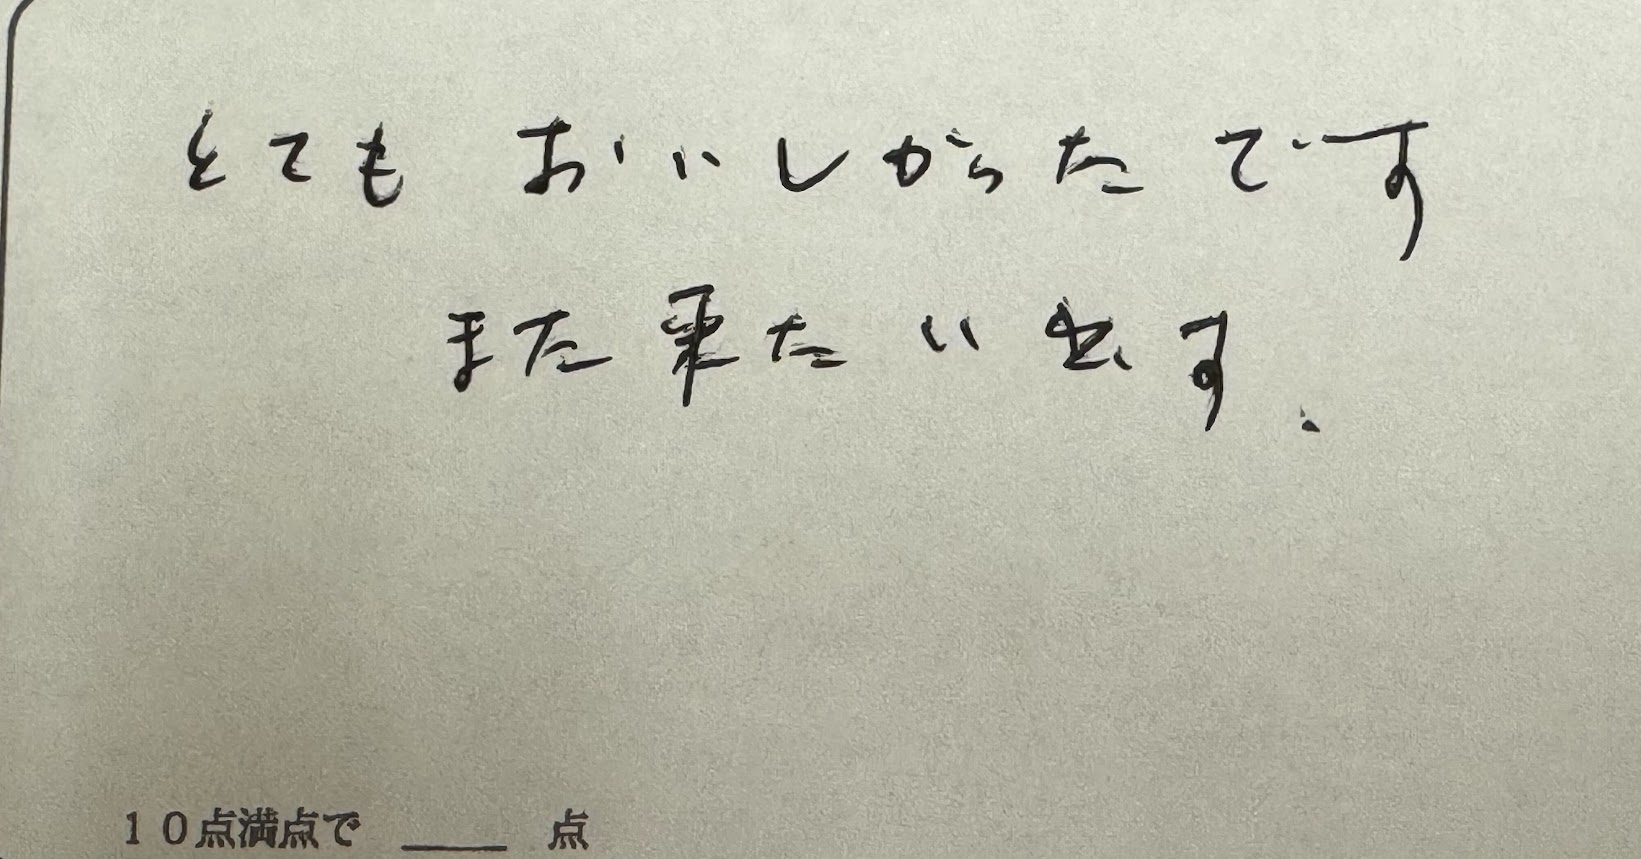 とてもおいしかったです
また来たいです.
10点満点で ＿＿ 点